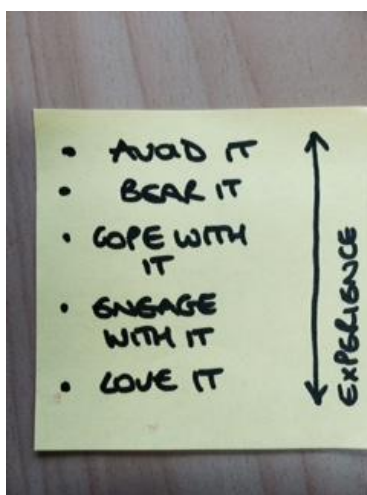 • AVOID IT
• BEAR IT
• COPE WITH
IT
• ENGAGE
WITH IT
• LOVE IT
EXPERIENCE